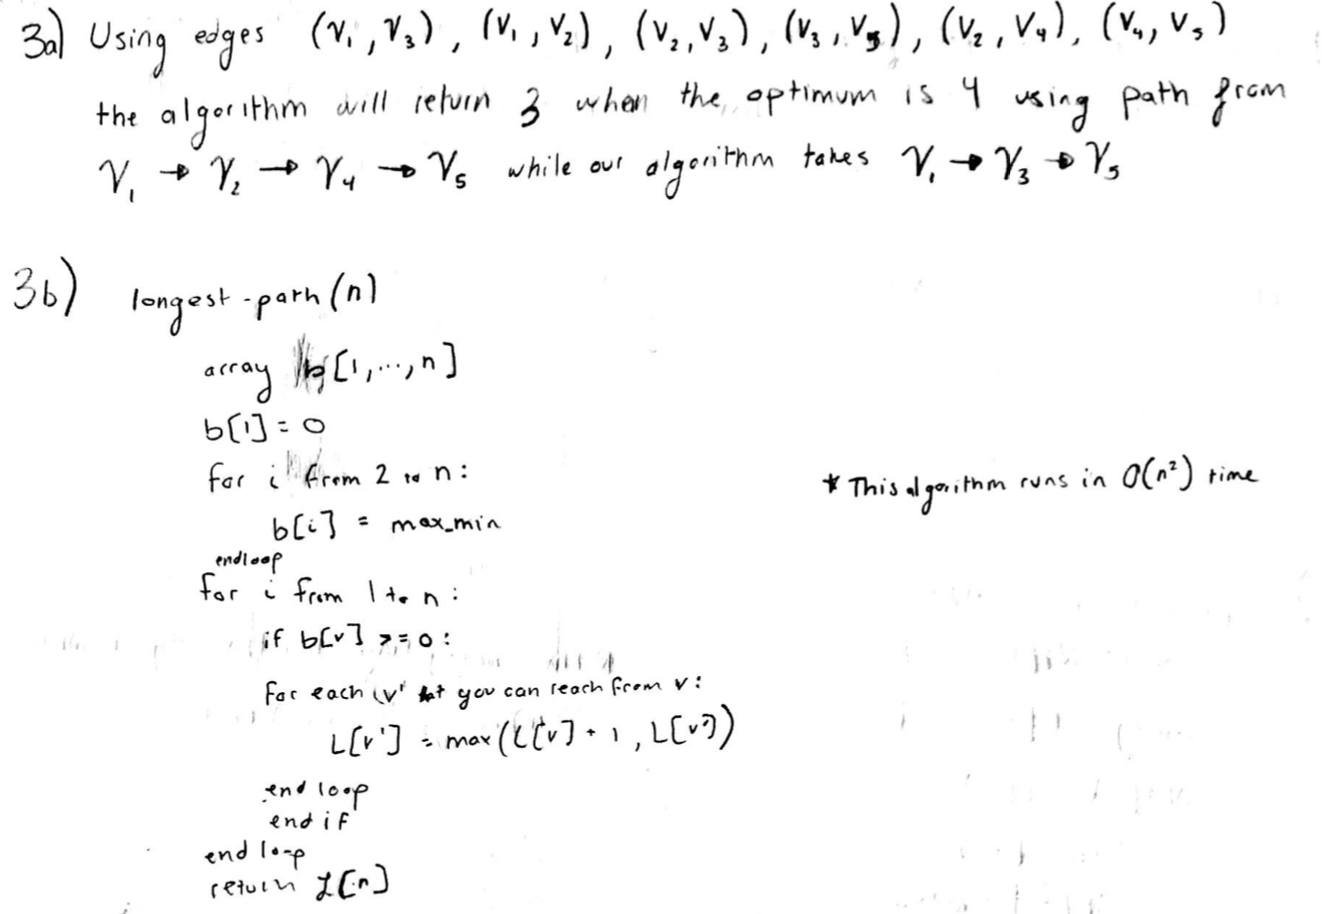 3a) Using edges (V₁, V₃), (V₁, V₂), (V₂, V₃), (V₃, V₅), (V₂, V₄), (V₄, V₅)
the algorithm will return 3 when the optimum is 4 using path from
V₁ → V₂ → V₄ → V₅ while our algorithm takes V₁ → V₃ → V₅
3b) longest-path(n)
array b[1,...,n]
b[1] = 0
for i from 2 to n:
* This algorithm runs in O(n²) time
b[i] = max_min
endloop
for i from 1 to n:
if b[v] >= 0:
for each v' you can reach from v:
L[v'] = max(L[v] + 1, L[v'])
end loop
end if
end loop
return L[n]